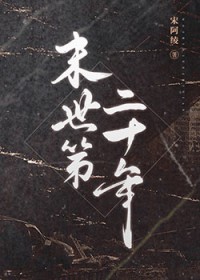 宋阿绫 著
末世第
二十年